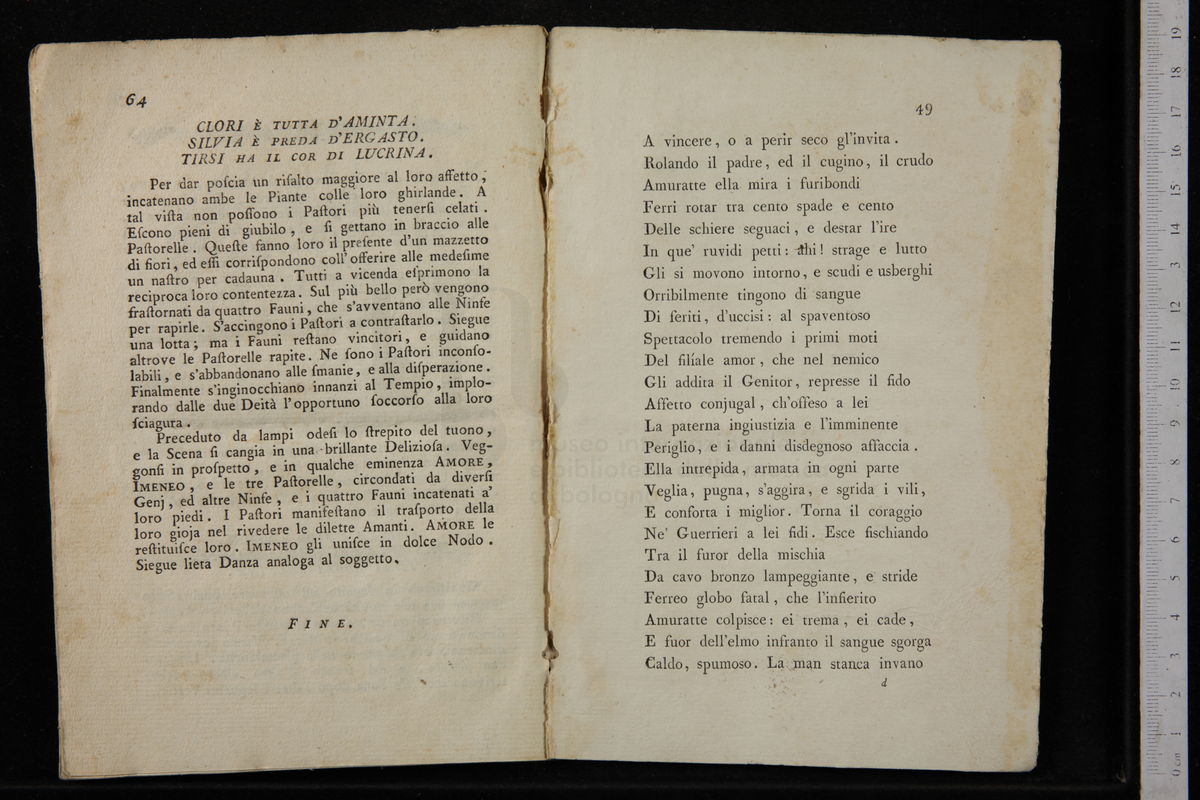 64
CLORI È TUTTA D'AMINTA.
SILVIA È PREDA D'ERGASTO.
TIRSI HA IL COR DI LUCRINA.
Per dar poſcia un riſalto maggiore al loro affetto,
incatenano ambe le Piante colle loro ghirlande. A
tal viſta non poſſono i Paſtori più tenerſi celati.
Eſcono pieni di giubilo, e ſi gettano in braccio alle
Paſtorelle. Queſte fanno loro il preſente d'un mazzetto
di fiori, ed eſſi corriſpondono coll' offerire alle medeſime
un naſtro per cadauna. Tutti a vicenda eſprimono la
reciproca loro contentezza. Sul più bello però vengono
fraſtornati da quattro Fauni, che s'avventano alle Ninfe
per rapirle. S'accingono i Paſtori a contraſtarlo. Siegue
una lotta; ma i Fauni reſtano vincitori, e guidano
altrove le Paſtorelle rapite. Ne ſono i Paſtori inconſo-
labili, e s'abbandonano alle ſmanie, e alla diſperazione.
Finalmente s'inginocchiano innanzi al Tempio, implo-
rando dalle due Deità l'opportuno ſoccorſo alla loro
ſciagura.
Preceduto da lampi odeſi lo ſtrepito del tuono,
e la Scena ſi cangia in una brillante Delizioſa. Veg-
gonſi in proſpetto, e in qualche eminenza AMORE,
IMENEO, e le tre Paſtorelle, circondati da diverſi
Genj, ed altre Ninfe, e i quattro Fauni incatenati a'
loro piedi. I Paſtori manifeſtano il traſporto della
loro gioja nel rivedere le dilette Amanti. AMORE le
reſtituiſce loro. IMENEO gli uniſce in dolce Nodo.
Siegue lieta Danza analoga al soggetto.
FINE.
49
A vincere, o a perir seco gl'invita.
Rolando il padre, ed il cugino, il crudo
Amuratte ella mira i furibondi
Ferri rotar tra cento spade e cento
Delle schiere seguaci, e destar l'ire
In que' ruvidi petti: ahi! strage e lutto
Gli si movono intorno, e scudi e usberghi
Orribilmente tingono di sangue
Di feriti, d'uccisi: al spaventoso
Spettacolo tremendo i primi moti
Del filiale amor, che nel nemico
Gli addita il Genitor, represse il fido
Affetto conjugal, ch'offeso a lei
La paterna ingiustizia e l'imminente
Periglio, e i danni disdegnoso affaccia.
Ella intrepida, armata in ogni parte
Veglia, pugna, s'aggira, e sgrida i vili,
E conforta i miglior. Torna il coraggio
Ne' Guerrieri a lei fidi. Esce fischiando
Tra il furor della mischia
Da cavo bronzo lampeggiante, e stride
Ferreo globo fatal, che l'infierito
Amuratte colpisce: ei trema, ei cade,
E fuor dell'elmo infranto il sangue sgorga
Caldo, spumoso. La man stanca invano
d